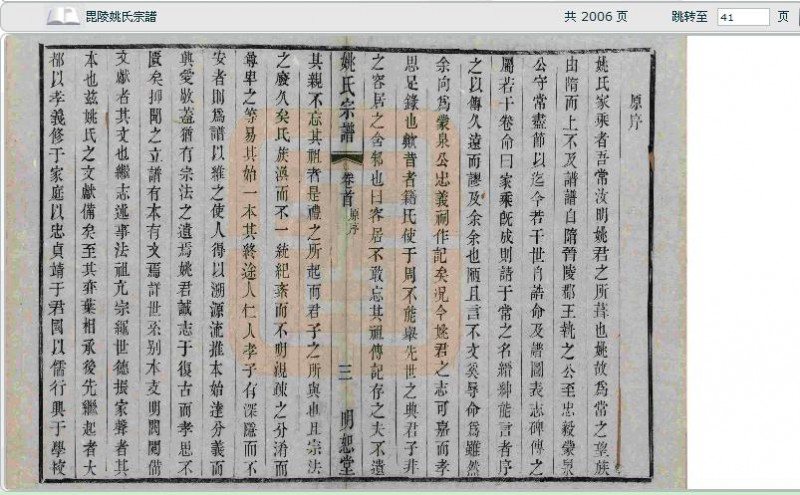 毘陵姚氏宗譜
共 2006 页
跳转至 41 页
原序
姚氏家乘者吾常汝明姚君之所葺也姚故為常之望族
由隋而上不及譜譜自隋晉陵郡王執之公至忠毅蒙泉
公守常盡節以迄今若干世肖誥命及譜圖表志碑傳之
屬若干卷命曰家乘旣成則請于常之名縉紳能言者序
之以傳久遠而謬及余余也陋且言不文奚辱命為雖然
余向為蒙泉公忠義祠作記矣况今姚君之志可嘉而孝
思足錄也歟昔者籍氏使于周不能舉先世之典君子非
之容居之含邾也曰容居不敢忘其祖傳記存之夫不遺
姚氏宗譜
卷首
原序
三
明恕堂
其親不忘其祖者是禮之所起而君子之所與也且宗法
之廢久矣氏族渙而不一統紀紊而不明親疎之分淆而
尊卑之等易其始一本其終途人仁人孝子有深隱而不
安者則為譜以維之使人得以溯源流推本始達分義而
興愛敬蓋猶有宗法之遺焉姚君誠志于復古而孝思不
匱矣抑聞之立譜有本有文焉詳世系别本支明閥閱備
文獻者其文也繼志述事法祖亢宗龜世德振家聲者其
本也兹姚氏之文獻備矣至其奕葉相承後先繼起者大
都以孝義修于家庭以忠貞靖于君國以儒行興于學校